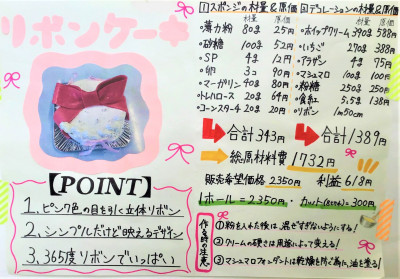 リボンケーキ
【POINT】
1、ピンク色の目を引く立体リボン
2、シンプルだけど映えるデザイン
3、365度リボンでいっぱい
1 スポンジの材量&原価
・薄力粉 80g 25円
・砂糖 100g 52円
・SP 4g 12円
・卵 3コ 90円
・マーガリン 40g 80円
・トレハロース 20g 64円
・コーンスターチ 20g 20円
合計343円
2 デコレーションの材量&原価
・ホイップクリーム 390g 588円
・いちご 270g 388円
・アラザン 4g 75円
・マシュマロ 100g 100円
・粉糖 250g 250円
・食紅 5.5g 138円
・リボン 1m50cm
合計1389円
総原材料費1732円
販売希望価格 2350円 利益618円
1ホール=2350円・カット(8cm)=300円
作る時の注意
① 粉を入れた後は、混ぜすぎないようにする!
② クリームの硬さは用途によって変える!
③ マシュマロフォンダントは乾燥を防ぐ為に、油を塗る!